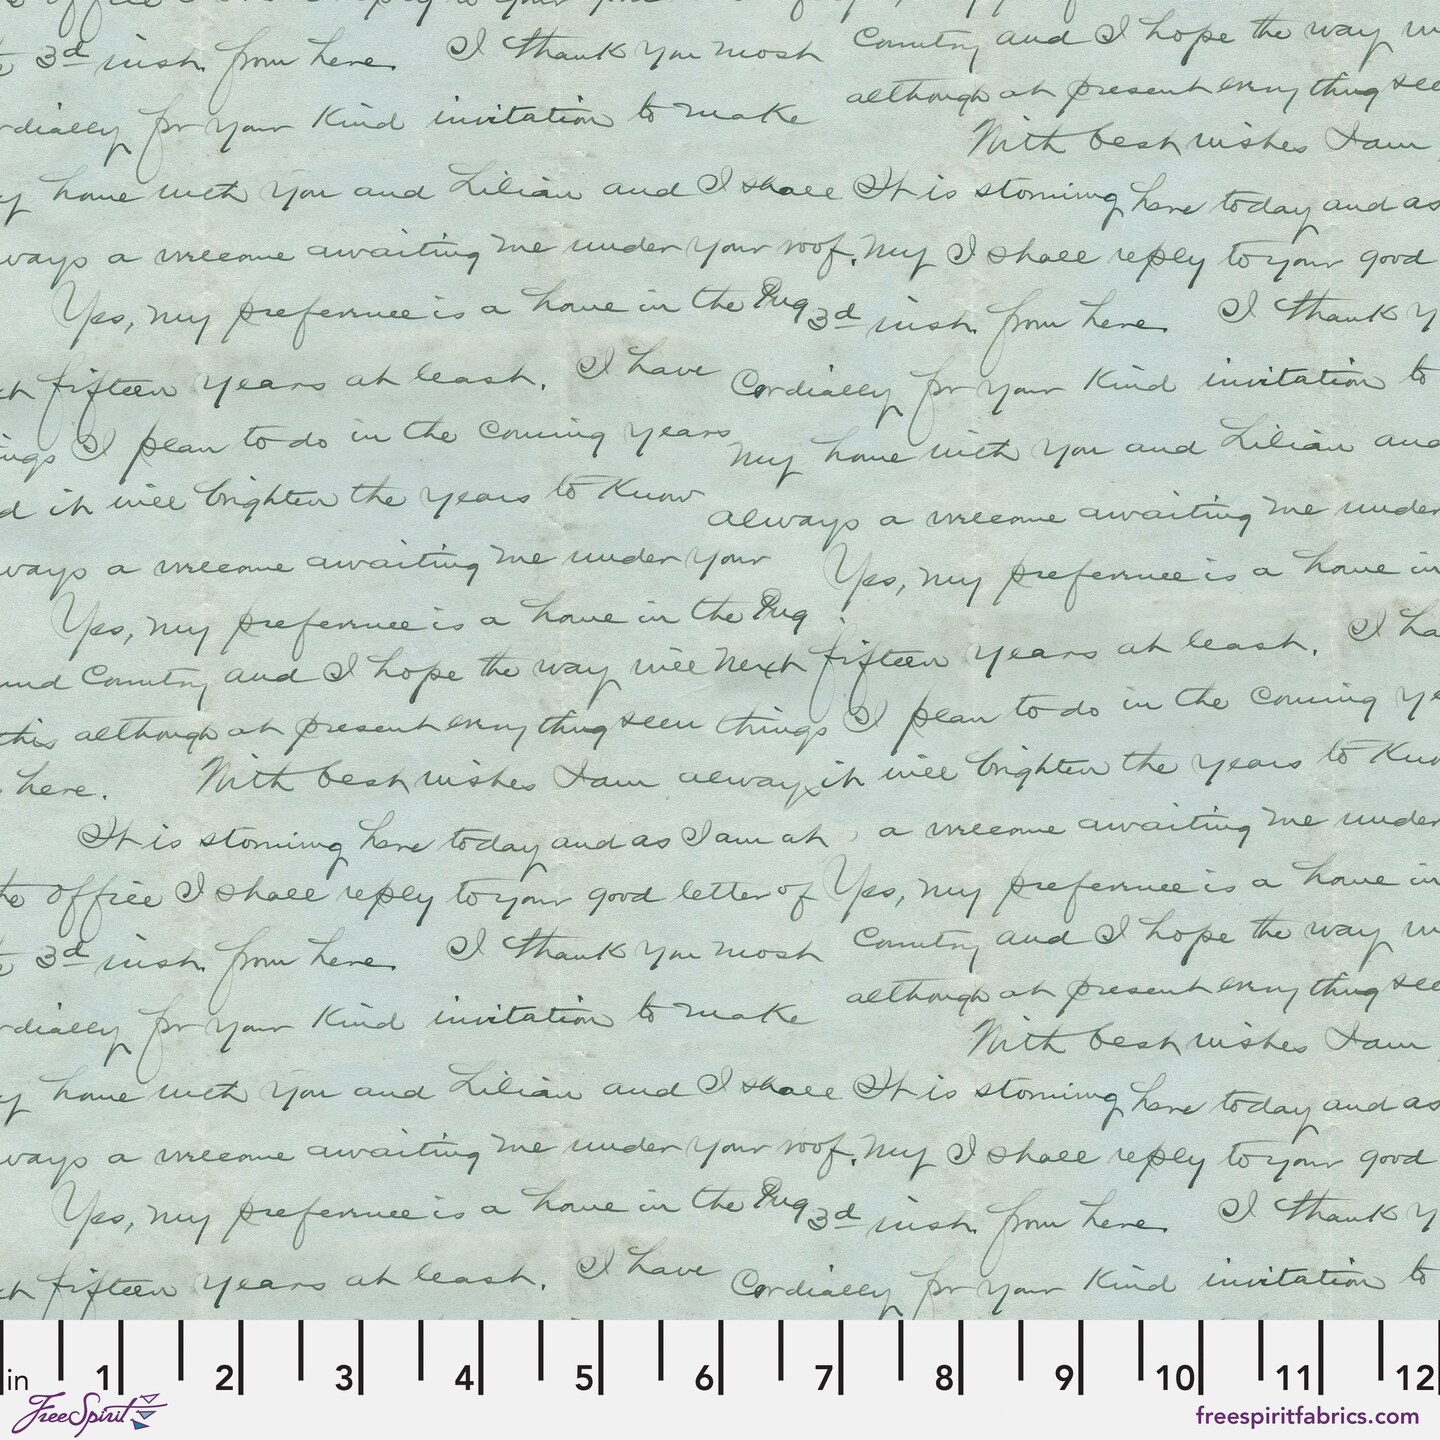 3d inst. from here. I thank you most
Country and I hope the way
although at present everything see
rdially for your kind invitation to make
With best wishes I am
y home with you and Lilian and I shall
It is storming here today and as
ways a welcome awaiting me under your roof.
my I shall reply to your good
Yes, my preference is a home in the Pug
3d inst. from here. I thank y
fifteen years at least. I have
Cordially for your kind invitation to
ings I plan to do in the coming years
my home with you and Lilian and
d it will brighten the years to know
always a welcome awaiting me under
ways a welcome awaiting me under your
Yes, my preference is a home in
Yes, my preference is a home in the Pug
fifteen years at least. I ha
and Country and I hope the way will next
I plan to do in the coming ye
this although at present everything seem things
it will brighten the years to kno
here. With best wishes I am always
It is storming here today and as I am at
a welcome awaiting me under
the office I shall reply to your good letter of
Yes, my preference is a home in
3d inst. from here. I thank you most
Country and I hope the way
although at present everything see
rdially for your kind invitation to make
With best wishes I am
y home with you and Lilian and I shall
It is storming here today and as
ways a welcome awaiting me under your roof.
my I shall reply to your good
Yes, my preference is a home in the Pug
3d inst. from here. I thank y
fifteen years at least. I have
Cordially for your kind invitation to
in 1 2 3 4 5 6 7 8 9 10 11 12
FreeSpirit
freespiritfabrics.com